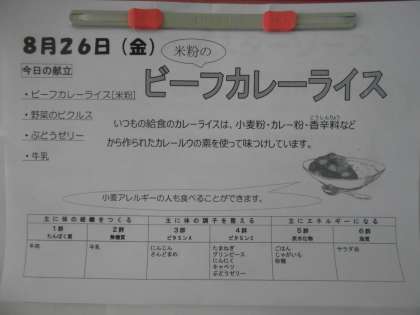 8月26日（金）
米粉の
ビーフカレーライス
今日の献立
・ビーフカレーライス[米粉]
・野菜のピクルス
・ぶどうゼリー
・牛乳
いつもの給食のカレーライスは、小麦粉・カレー粉・香辛料など
こうしんりょう
から作られたカレールウの素を使って味つけしています。
小麦アレルギーの人も食べることができます。
主に体の組織をつくる 主に体の調子を整える 主にエネルギーになる
1群 2群 3群 4群 5群 6群
たんぱく質 無機質 ビタミンA ビタミンC 炭水化物 脂質
牛肉 牛乳 にんじん たまねぎ ごはん サラダ油
さんどまめ グリンピース じゃがいも
にんにく 砂糖
キャベツ
ぶどうゼリー